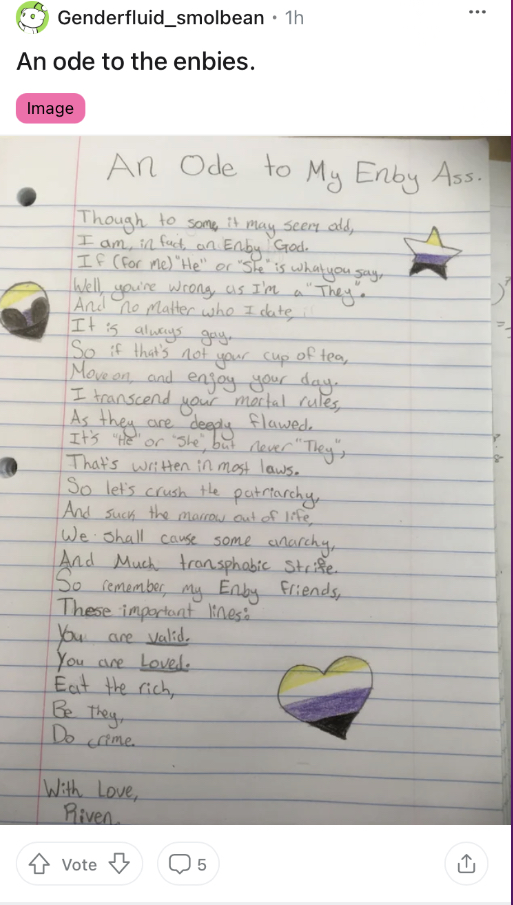 Genderfluid_smolbean • 1h
An ode to the enbies.
Image
An Ode to My Enby Ass.
Though to some, it may seem odd,
I am, in fact, an Enby God.
If (for me) "He" or "She" is what you say,
Well, you're wrong, as I'm a "They".
And no matter who I date,
It is always gay.
So if that's not your cup of tea,
Move on, and enjoy your day.
I transcend your mortal rules,
As they are deeply flawed.
It's "He" or "She", but never "They",
That's written in most laws.
So let's crush the patriarchy,
And suck the marrow out of life,
We shall cause some anarchy,
And Much transphobic Strife.
So remember, my Enby Friends,
These important lines:
You are valid.
You are Loved.
Eat the rich,
Be They,
Do crime.
With Love,
Riven
Vote
5